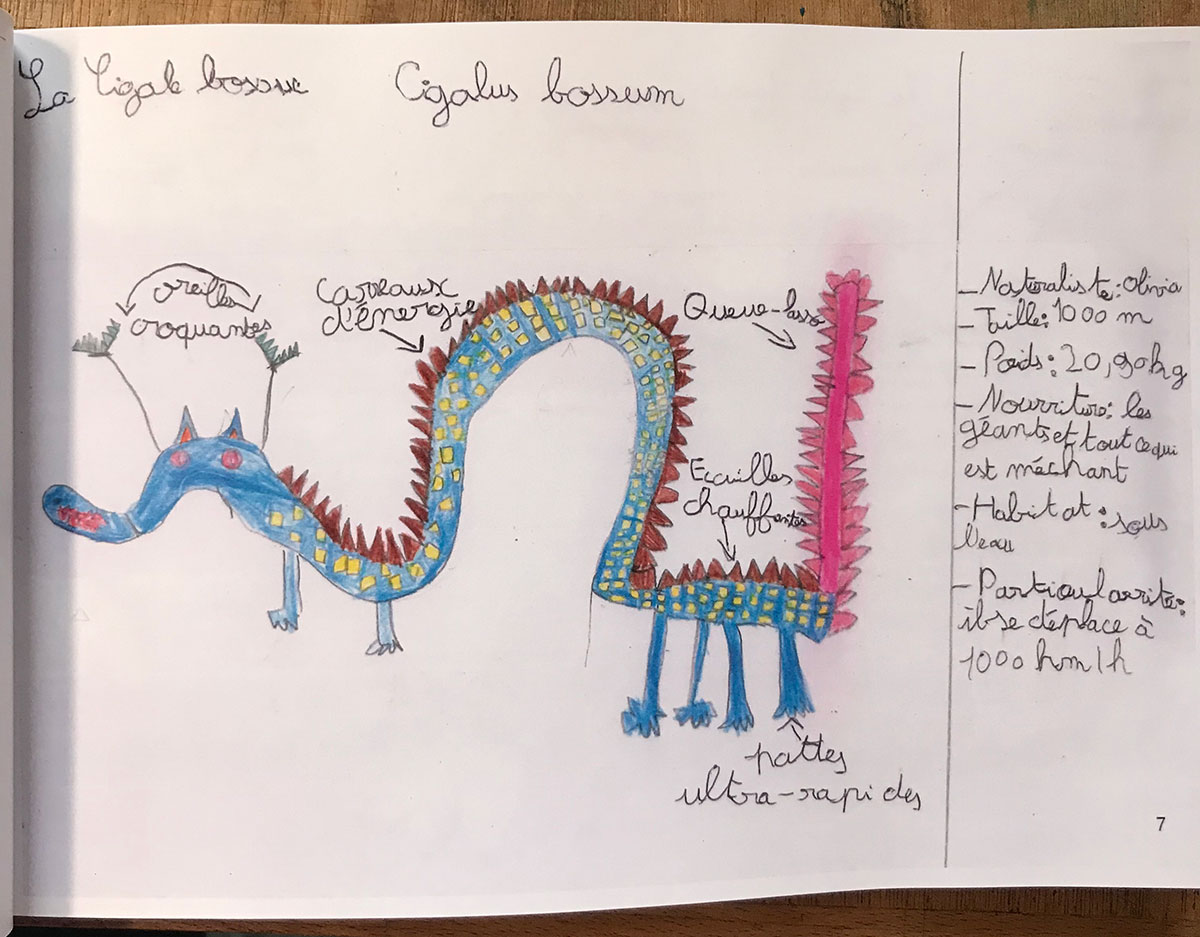 La Cigale bossue
Cigalus bosseum
oreilles
croquantes
Carreaux
d'énergie
Queue-lasso
Ecailles
chauffantes
pattes
ultra-rapides
- Naturaliste: Olivia
- Taille: 1000 m
- Poids: 20,90 kg
- Nourriture: les
géants et tout ce qui
est méchant
- Habitat: sous
l'eau
- Particularrité:
il se déplace à
1000 km/h
7